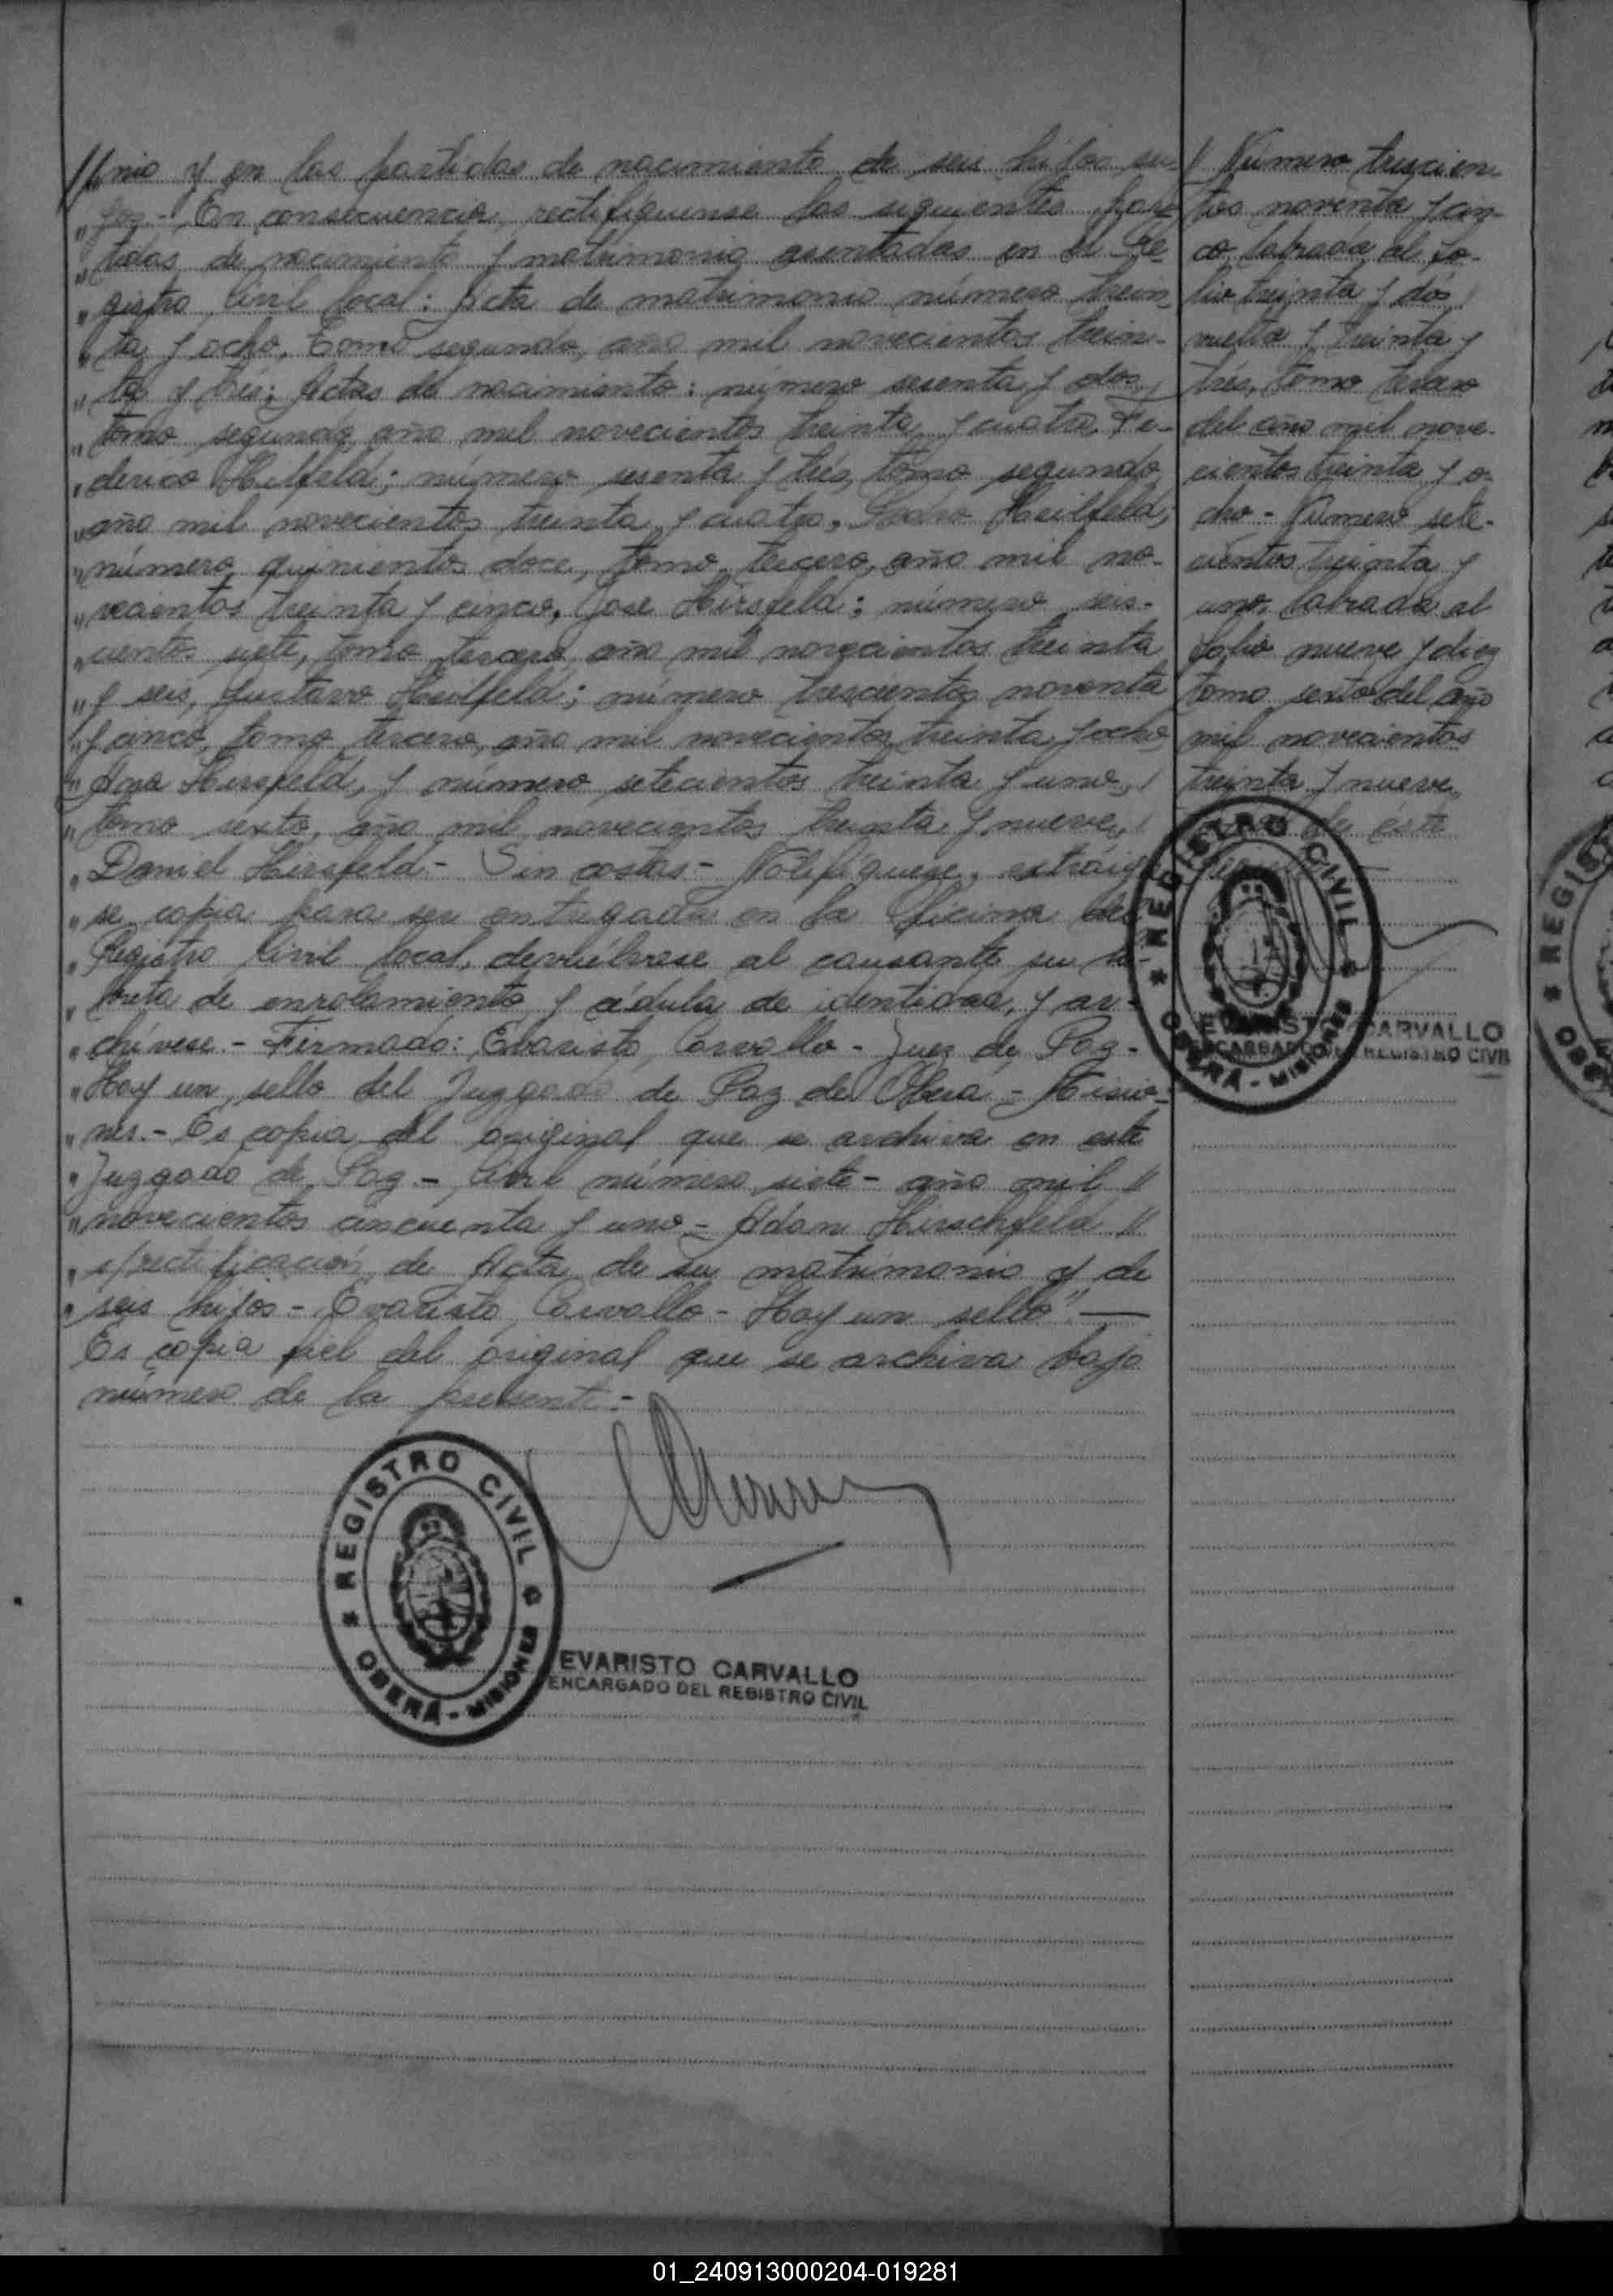 //monio y en las partidas de nacimiento de seis hijos su-
" yos.- En consecuencia, rectifíquense las siguientes par-
" tidas de nacimiento y matrimonio asentadas en el Re-
" gistro Civil local: Acta de matrimonio número trein-
" ta y ocho, Tomo segundo, año mil novecientos trein-
" ta y trés; Actas de nacimiento: número sesenta y dos,
" tomo segundo, año mil novecientos treinta y cuatro, Fe-
" derico Heilfeld; número sesenta y trés, tomo segundo,
" año mil novecientos treinta y cuatro, Pedro Heilfeld;
" número quinientos doce, tomo tercero, año mil no-
" vecientos treinta y cinco, José Hirsfeld; número seis-
" cientos siete, tomo tercero, año mil novecientos treinta
" y seis, Gustavo Heilfeld; número trescientos noventa
" y cinco, tomo tercero, año mil novecientos treinta y ocho
" Ana Hirsfeld, y número setecientos treinta y uno,
" tomo sexto, año mil novecientos treinta y nueve,
" Daniel Hirsfeld.- Sin costas.- Notifíquese, extráiga
" se copia para ser entregada en la Oficina del
" Registro Civil local, devuélvase al causante su li-
" breta de enrolamiento y cédula de identidad, y ar-
" chívese.- Firmado: Evaristo Carvallo - Juez de Paz-
" Hay un sello del Juzgado de Paz de Oberá - Misio-
" nes.- Es copia del original que se archiva en este
" Juzgado de Paz - Civil número siete - año mil //
" novecientos cincuenta y uno - Adán Hirschfeld //
" s/rectificación de Acta de su matrimonio y de
" seis hijos - Evaristo Carvallo - Hay un sello".-
Es copia fiel del original que se archiva bajo
número de la presente.-
REGISTRO CIVIL
OBERÁ - MISIONES
EVARISTO CARVALLO
ENCARGADO DEL REGISTRO CIVIL
// Número trescien
tos noventa y cin-
co, labrada al fo-
lio treinta y dós
vuelta y treinta y
trés, tomo tercero
del año mil nove-
cientos treinta y o-
cho - Número sete-
cientos treinta y
uno, labrada al
folio nueve y diez
tomo sexto del año
mil novecientos
treinta y nueve,
de éste
REGISTRO CIVIL
OBERÁ - MISIONES
EVARISTO CARVALLO
ENCARGADO DEL REGISTRO CIVIL
01_240913000204-019281